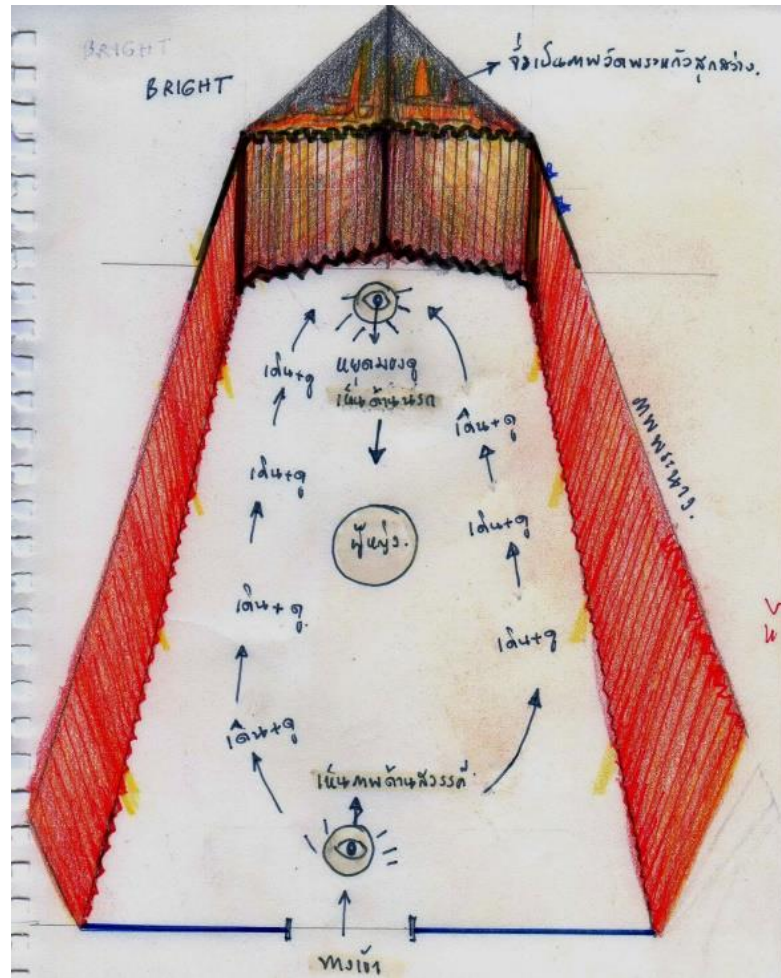 BRIGHT
BRIGHT
เป็นภาพวัดพระแก้วสุกสว่าง.
หยุดมองดู
เห็นด้านนรก
เดิน+ดู
เดิน+ดู
เดิน+ดู
เดิน+ดู
เดิน+ดู
เดิน+ดู
เดิน+ดู
ผู้หญิง.
ภาพพระนาง.
เห็นภาพด้านสวรรค์
ทางเข้า